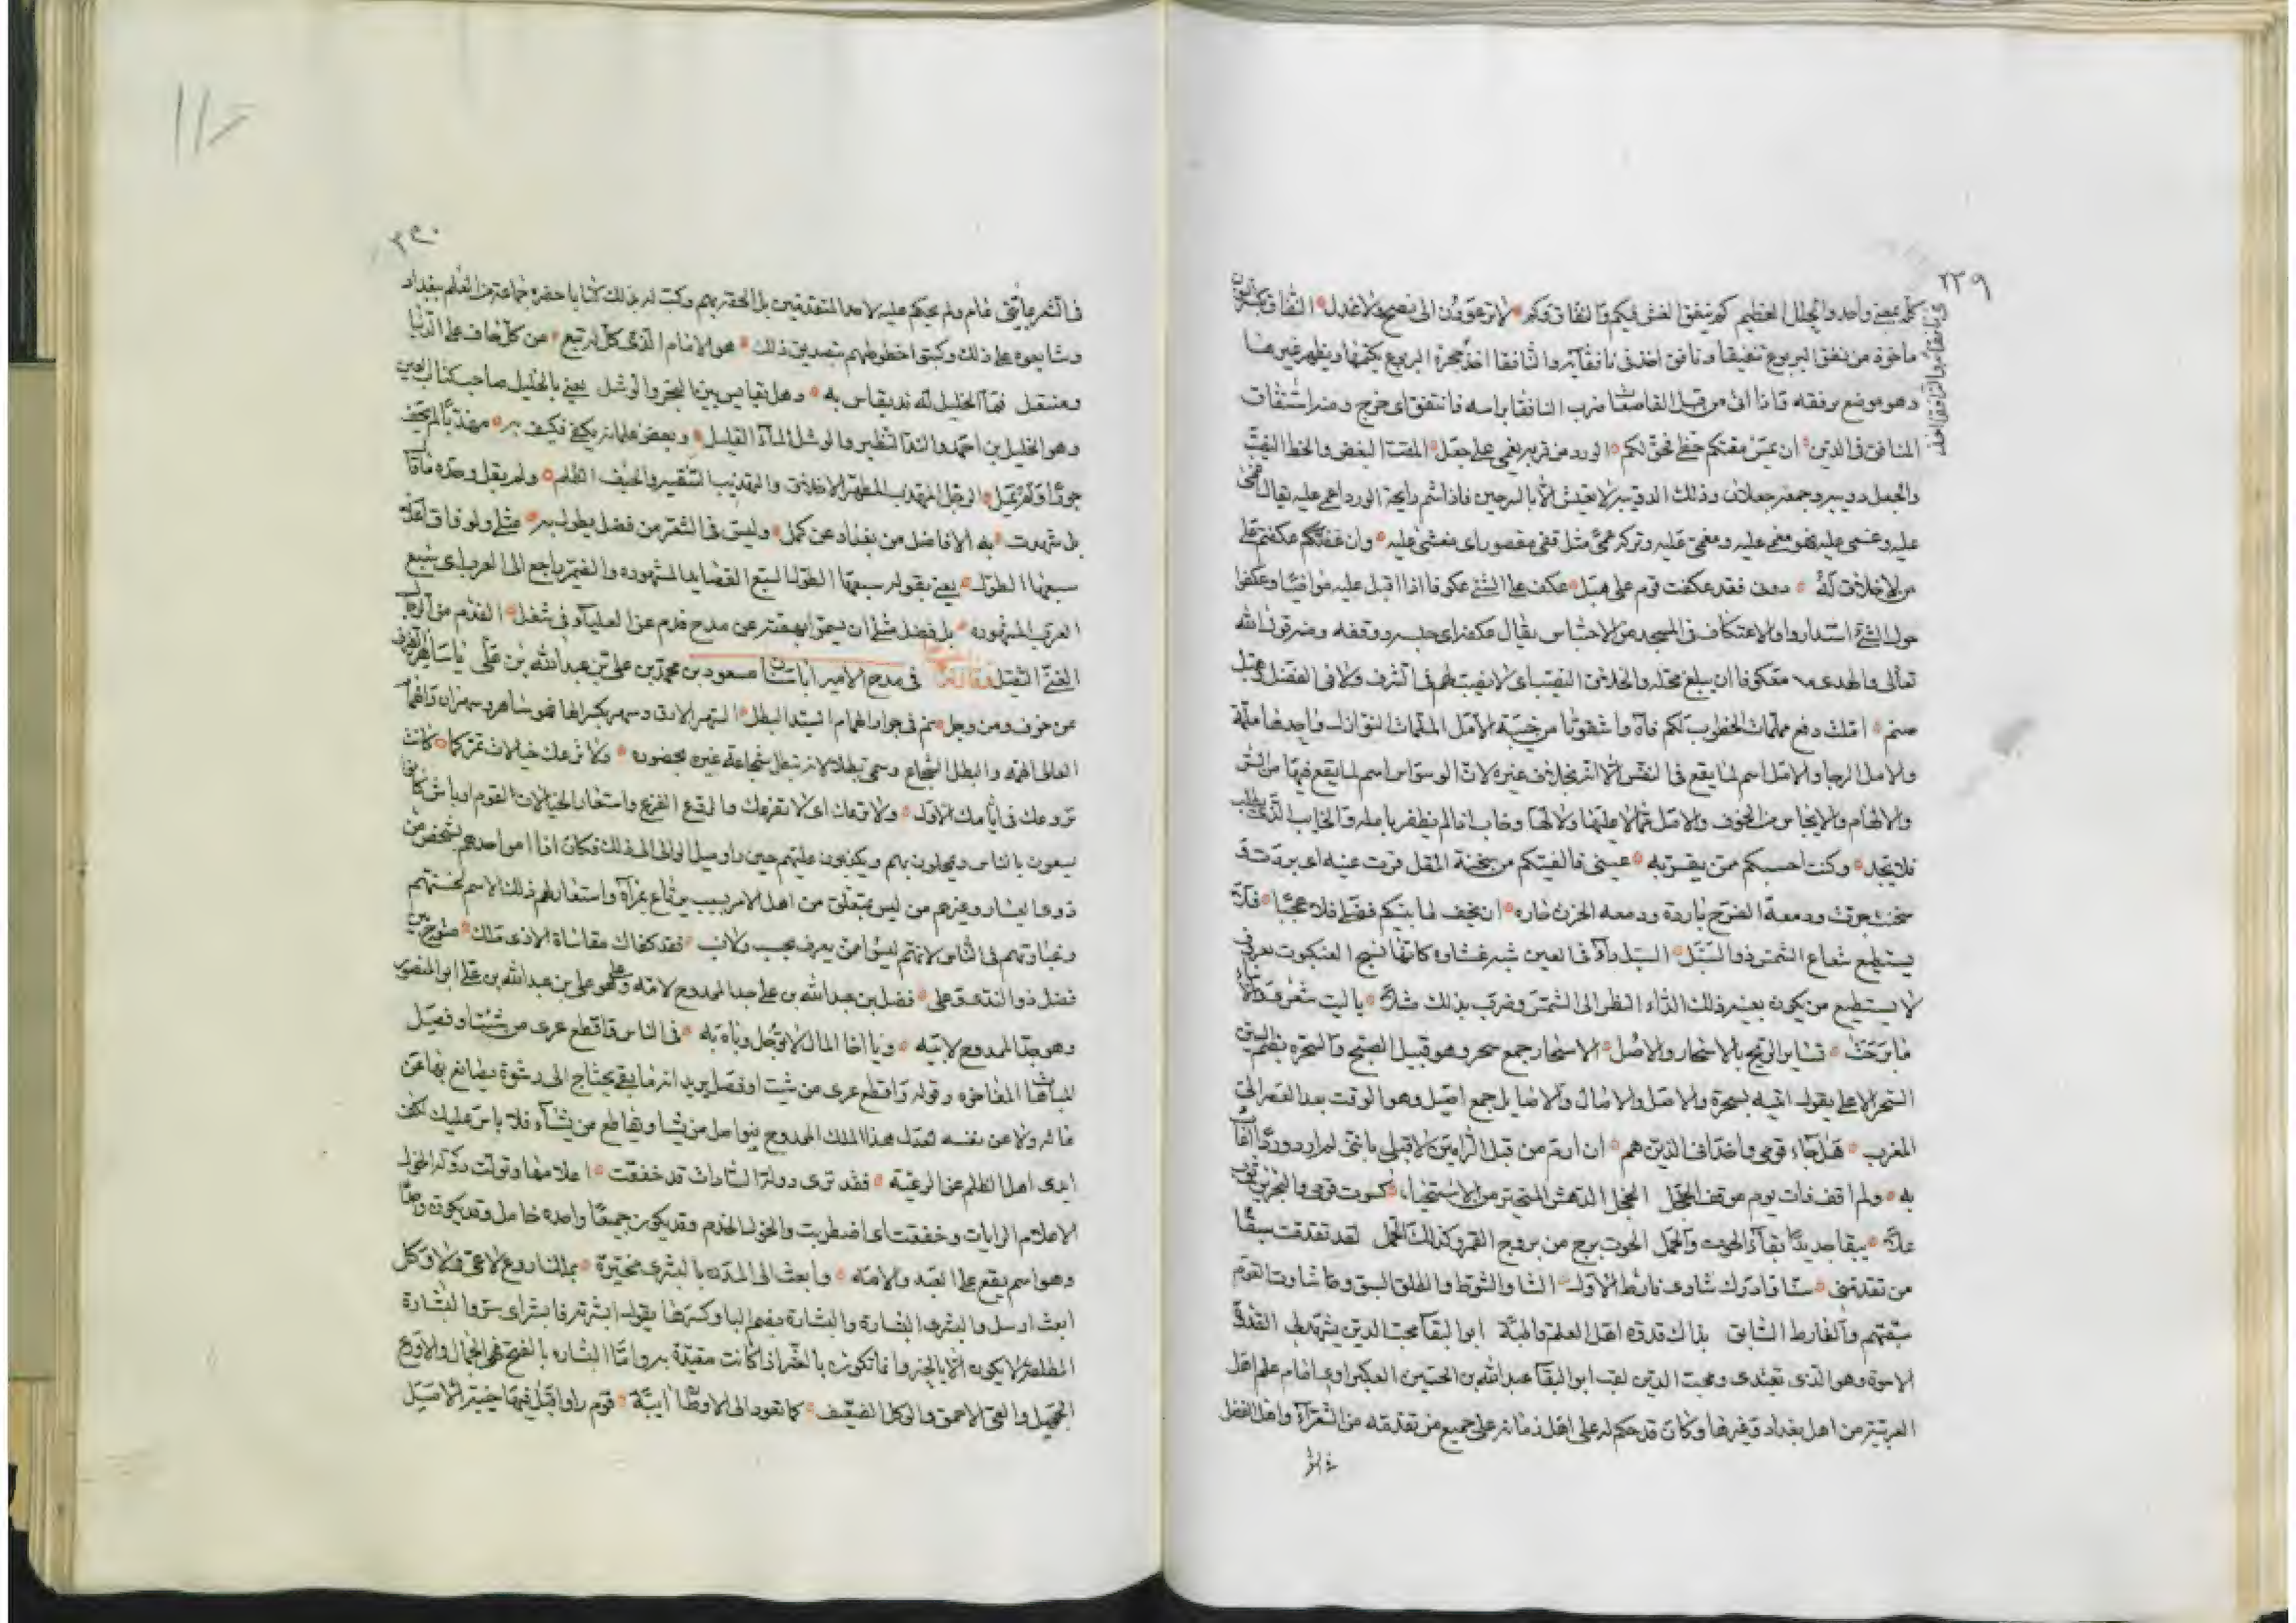 ٢٣٩
كله بمعنى واحد والجلل العظيم كم ينفق الغش فيكم والنفاق وكم لا ترعوون الى نصح ولا عذل النفاق
ماخوذ من نفق اليربوع تنفيقا ونافق اخذ في نافقائه والنافقا احد جحرة اليربوع يكتمها ويظهر غيرها
وهو موضع يرفقه فاذا اتى من قبل القاصعا ضرب النافقا براسه فانتفق اى خرج ومنه اشتقاق
المنافق في الدين ان يمس مقتكم حظى فحق لكم الورد من قربه يغمى على جعل المقت البغض والحظ البخت
والجعل دويبه وجمعه جعلان وذلك الدويبه لا يعيش الا بالسرجين فاذا شم رايحة الورد اغمى عليه يقال
عليه وغمى عليه فهو مغمى عليه ومغمى عليه وتركه غمى مثل قفى مقصور اى مغشى عليه وان عكفتم على
من لا خلاق له دونى فقد عكفت قوم على هبل عكف على الشئ عكوفا اذا اقبل عليه مواظبا وعكفوا
حول الشئ استداروا والاعتكاف في المسجد من الاحتباس يقال عكفه اى حبسه ووقفه ومنه قوله الله
تعالى والهدى معكوفا ان يبلغ محله والخلاق النصيب اى لا نصيب لهم في الشرف ولا في الفضل وهبل
صنم املت دفع ملمات الخطوب بكم فاه واشقوتا من خيبة الامل الملمات النوازل واحدها ملمة
والامل الرجا والامل اسم لما يقع في النفس من الخير بخلاف غيره لان الوسواس اسم لما يقع فيها من الشر
والالهام والايجاس من الخوف والامل مما لا عليها ولا لها وخاب اذا لم يظفر بامله والخايب الذى يطلب
فلا يجد وكنت احسبكم ممن يقر به عينى فالفيتكم من سخنة المقل قرت عينه اى بردت
سخنت حرقت ودمعة الفرح باردة ودمعه الحزن حاره ان يخف ما بينكم فضلى فلا عجبا فلا
يستطيع شعاع الشمس ذو السبل السبل داء في العين شبه غشاوه كانها نسج العنكبوت
لا يستطيع من يكون بعينه ذلك الداء النظر الى الشمس وضرب بذلك مثلا يا ليت شعرى
ما برحت تساير الريح بالاسحار والاصل الاسحار جمع سحر وهو قبيل الصبح والسحره بضم السين
السحر الاعلى يقول اتيته بسحرة والاصل والاصال والاصايل جمع اصيل وهو الوقت بعد العصر الى
المغرب هل جاء قومى واخدانى الذين هم ان ارم من قبل الرامين لا قبلى
به ولم اقف فات يوم موقف الخجل الخجل الدهش المتحير من الاستحياء كسوت قومى والبحرين ثوب
علا يبقا جديدا بقاء الحوت والحمل الحوت برج من بروج القمر وكذلك الحمل لقد تقدمت سبقا
من تقدمنى سنا وادرك شاوى فارط الاول الشاو الشوط والطلق السبق وما شاوت القوم
سبقتهم والفارط السابق بذاك قدوه اهل العلم والهبة ابو البقا محب الدين يشهد لى القدوة
الاسوة وهو الذى تقتدى ومحب الدين لقب ابو البقا عبد الله بن الحسين العكبراوى امام علم اهل
العربية من اهل بغداد وغيرها وكان قد حكم له على اهل زمانه وعلى جميع من تقدمه من الشعرآء واهل الفضل
في الشعر
في الشعر ولم يحكم عليه لاحد المتقدمين بل الحقه بهم وكتب له بذلك كتابا حضره جماعة من العلم ببغداد
وشايعوه على ذلك وكتبوا خطوطهم بتصديق ذلك هو الامام الذى كل له تبع من كل حاف على الدنيا
ومنتعل فما الخليل له ند يقاس به وهل تقايس بين البحر والوشل يعنى بالخليل صاحب كتاب العين
وهو الخليل بن احمد والند النظير والوشل الماء القليل وبعض علمائه يكفى فكيف به مهذبا لم يحف
جورا ولم يمل الرجل المهذب المطهر الاخلاق والتهذيب التنقيه والحيف الظلم ولم يقل وحده ماقا
بل شهدت به الافاضل من بغداد عن كمل وليس في الشعر من فضل يطول به مثلى ولو فاق اعلا
سبعها الطول يعنى بقوله سبعها الطول السبع القصايد المشهوره والضمير راجع الى العرب اى سبع
العرب المشهوره بل فضل مثلى ان يسموا بهمته عن مدح فدم عن العلياء في شغل الفدم من الرجال
الغبى الثقيل وقال ايضا في مدح الامير ابا سنان مسعود بن محمد بن على بن عبد الله بن على يا ساهر الطرف
من خوف ومن وجل نم في جوار الهمام السيد البطل السهر الارق وسهر بكسر الها فهو ساهر وسهران والهمام
العالى الهمة والبطل الشجاع وسمى بطلا لانه تبطل شجاعة غيره بحضوره ولا ترعك خيالات تمر كما كانت
تروعك في ايامك الاول ولا ترعك اى لا تفزعك والروع الفزع واستعار الخيالات القوم اوباش كانوا
يسعون بالناس ويمحلون بهم ويكذبون عليهم حين
ذوى ايسار وغيرهم من ليس يتعلق من اهل الامر بسبب واستعار لهم ذلك الاسم لخستهم
وغباوتهم في الناس لانهم ليسوا ممن يعرف بحسب ولا نسب فقد كفاك مقاساة الاذى ملك
فضل ذو الندى وعلى فضل بن عبد الله بن على جد الممدوح لامه وعلى هو على بن عبد الله بن على ابو المنصور
وهو جد الممدوح لابيه ويا اخا المال لا توجل وباه به في الناس واقطع عرى من شئت او فصل
المباهاة المفاخره وقوله واقطع عرى من شئت او فصل يريد انه ما بقى يحتاج الى رشوة يصانع بها عن
ماله ولا عن نفسه لعدل هذا الملك الممدوح فيواصل من يشا ويقاطع من يشاء فلا باس عليك
ايدى اهل الظلم عن الرعية فقد ترى دولة السادات قد خفقت اعلامها وتولت دولة الخول
الاعلام الرايات وخفقت اى اضطربت والخول الخدم وقد يكون جميعا واحده خايل وقد يكون واحدا
وهو اسم يقع على العبد والامه وابعث الى المدن بالبشرى مخبرة
ابعث ارسل والبشرى البشارة والبشارة بضم البا وكسرها يقول ابشرته فابشر اى سر والبشارة
المطلقة لا يكون الا بالخير وانما تكون بالشر اذا كانت مقيدة به واما البشاره بالفتح فهى الجمال والاروع
الجميل والغى الاحمق والوكل الضعيف كما تعود الى الاوطان آيبة قوم راوا قبل فيها خيبة الاميل